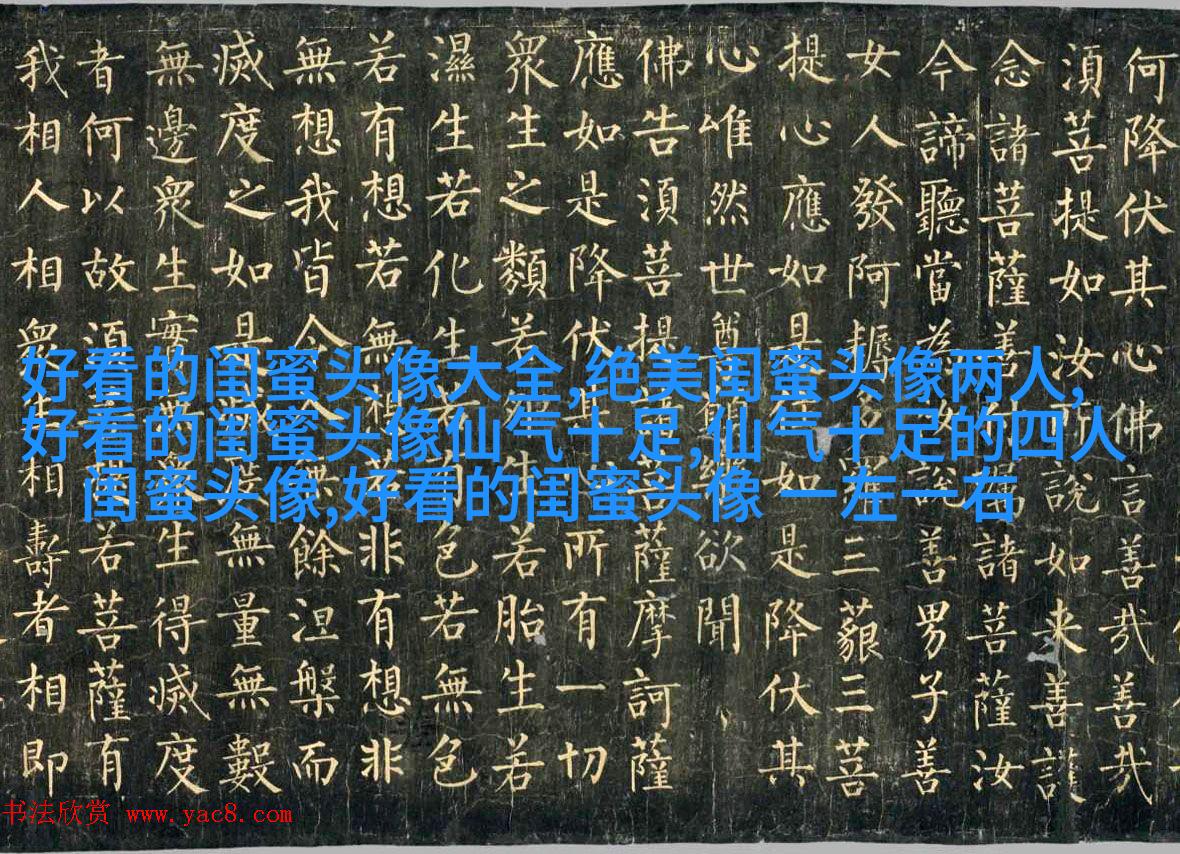 何降伏其心佛言善哉善哉
須菩提如汝所說如来善護
念諸菩薩善付囑諸菩薩汝
今諦聽當為汝說善男子善
女人發阿耨多羅三藐三菩
提心應如是住如是降伏其
心唯然世尊願樂欲聞
佛告須菩提諸菩薩摩訶薩
應如是降伏其心所有一切
衆生之類若卵生若胎生若
濕生若化生若有色若無色
若有想若無想若非有想非
無想我皆令入無餘涅槃而
滅度之如是滅度無量無數
無邊衆生實無衆生得滅度
者何以故須菩提若菩薩有
我相人相衆生相壽者相即
好看的闺蜜头像大全,绝美闺蜜头像两人,
好看的闺蜜头像仙气十足,仙气十足的四人
闺蜜头像,好看的闺蜜头像 一左一右
书法欣赏 www.yac8.com